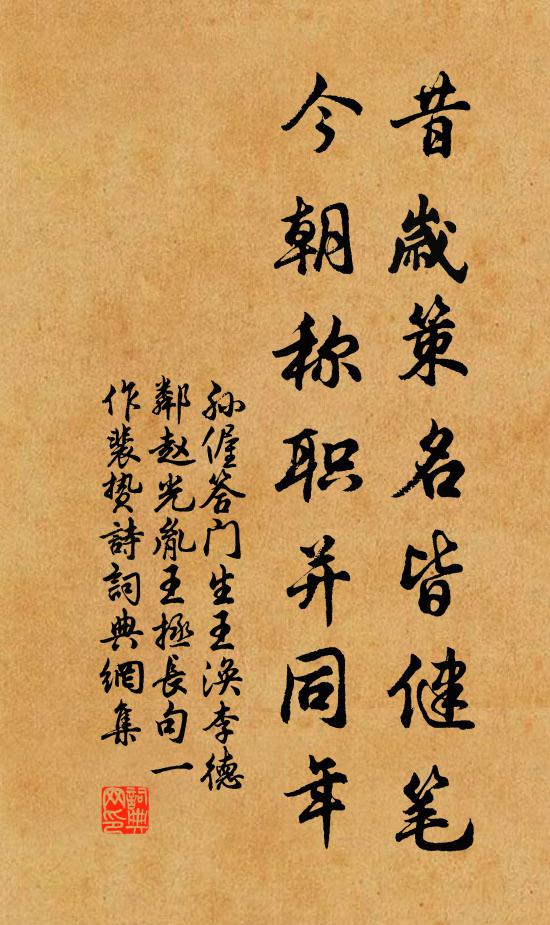 昔岁策名皆健笔
今朝称职并同年
孙偓答门生王涣李德
鄰赵光胤王拯長句一
作裴贽詩詞典網集
詞典网印